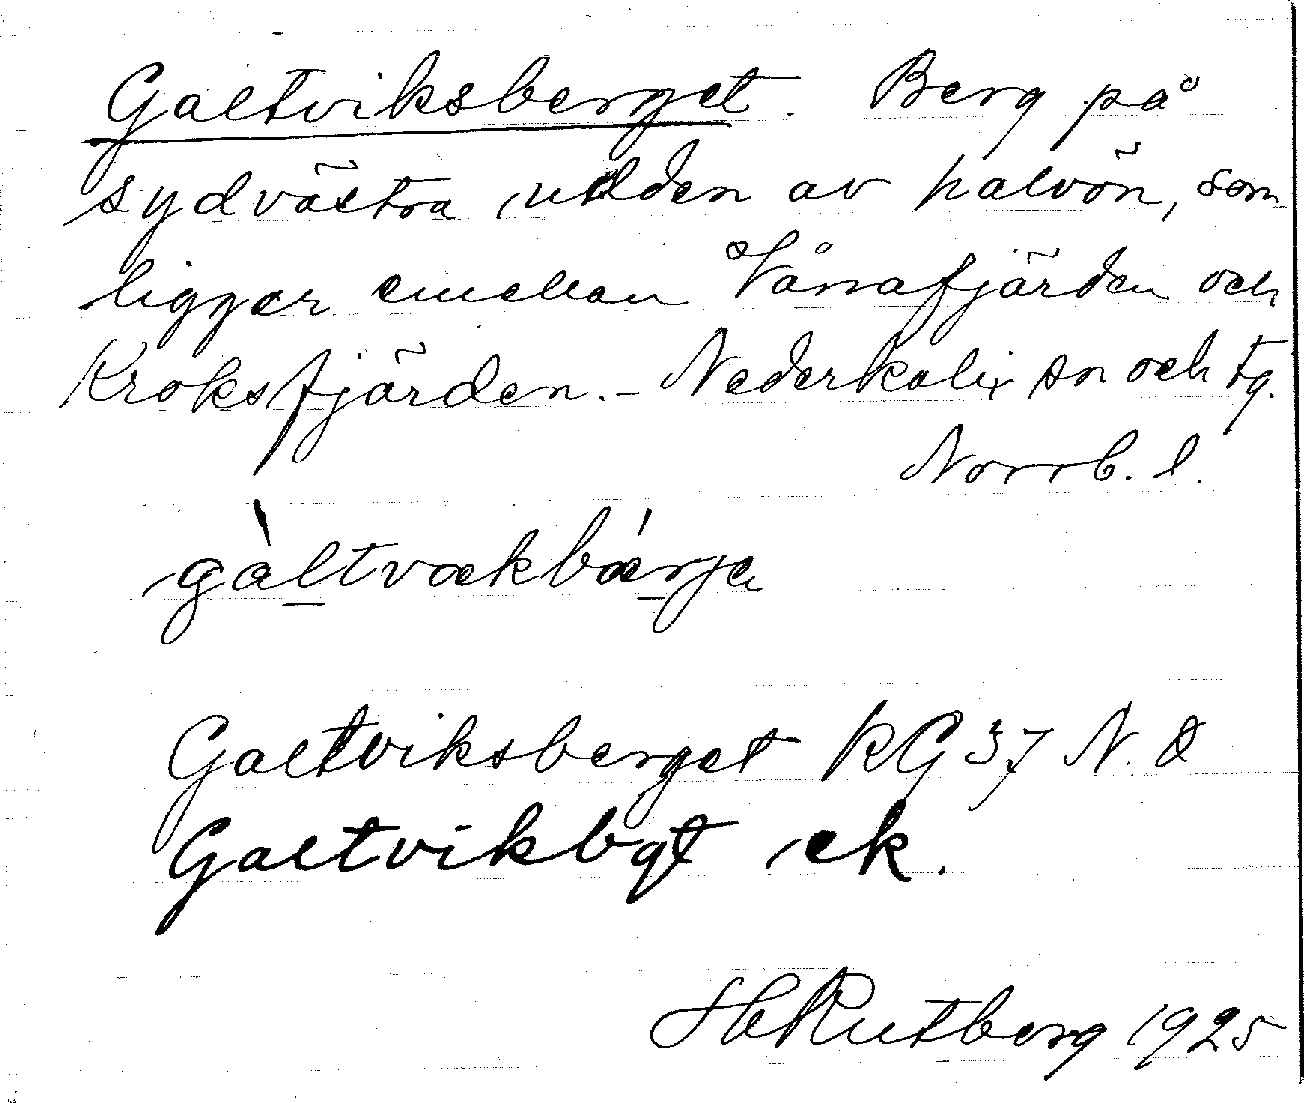 Galtviksberget. Berg på
sydvästra udden av halvön, som
ligger emellan Vånafjärden och
Kroksfjärden. - Nederkalix sn och tg.
Norrb. l.
gàltvækbǽrje
Galtviksberget KG 37 N. O
Galtvikbgt ek.
H Rutberg 1925